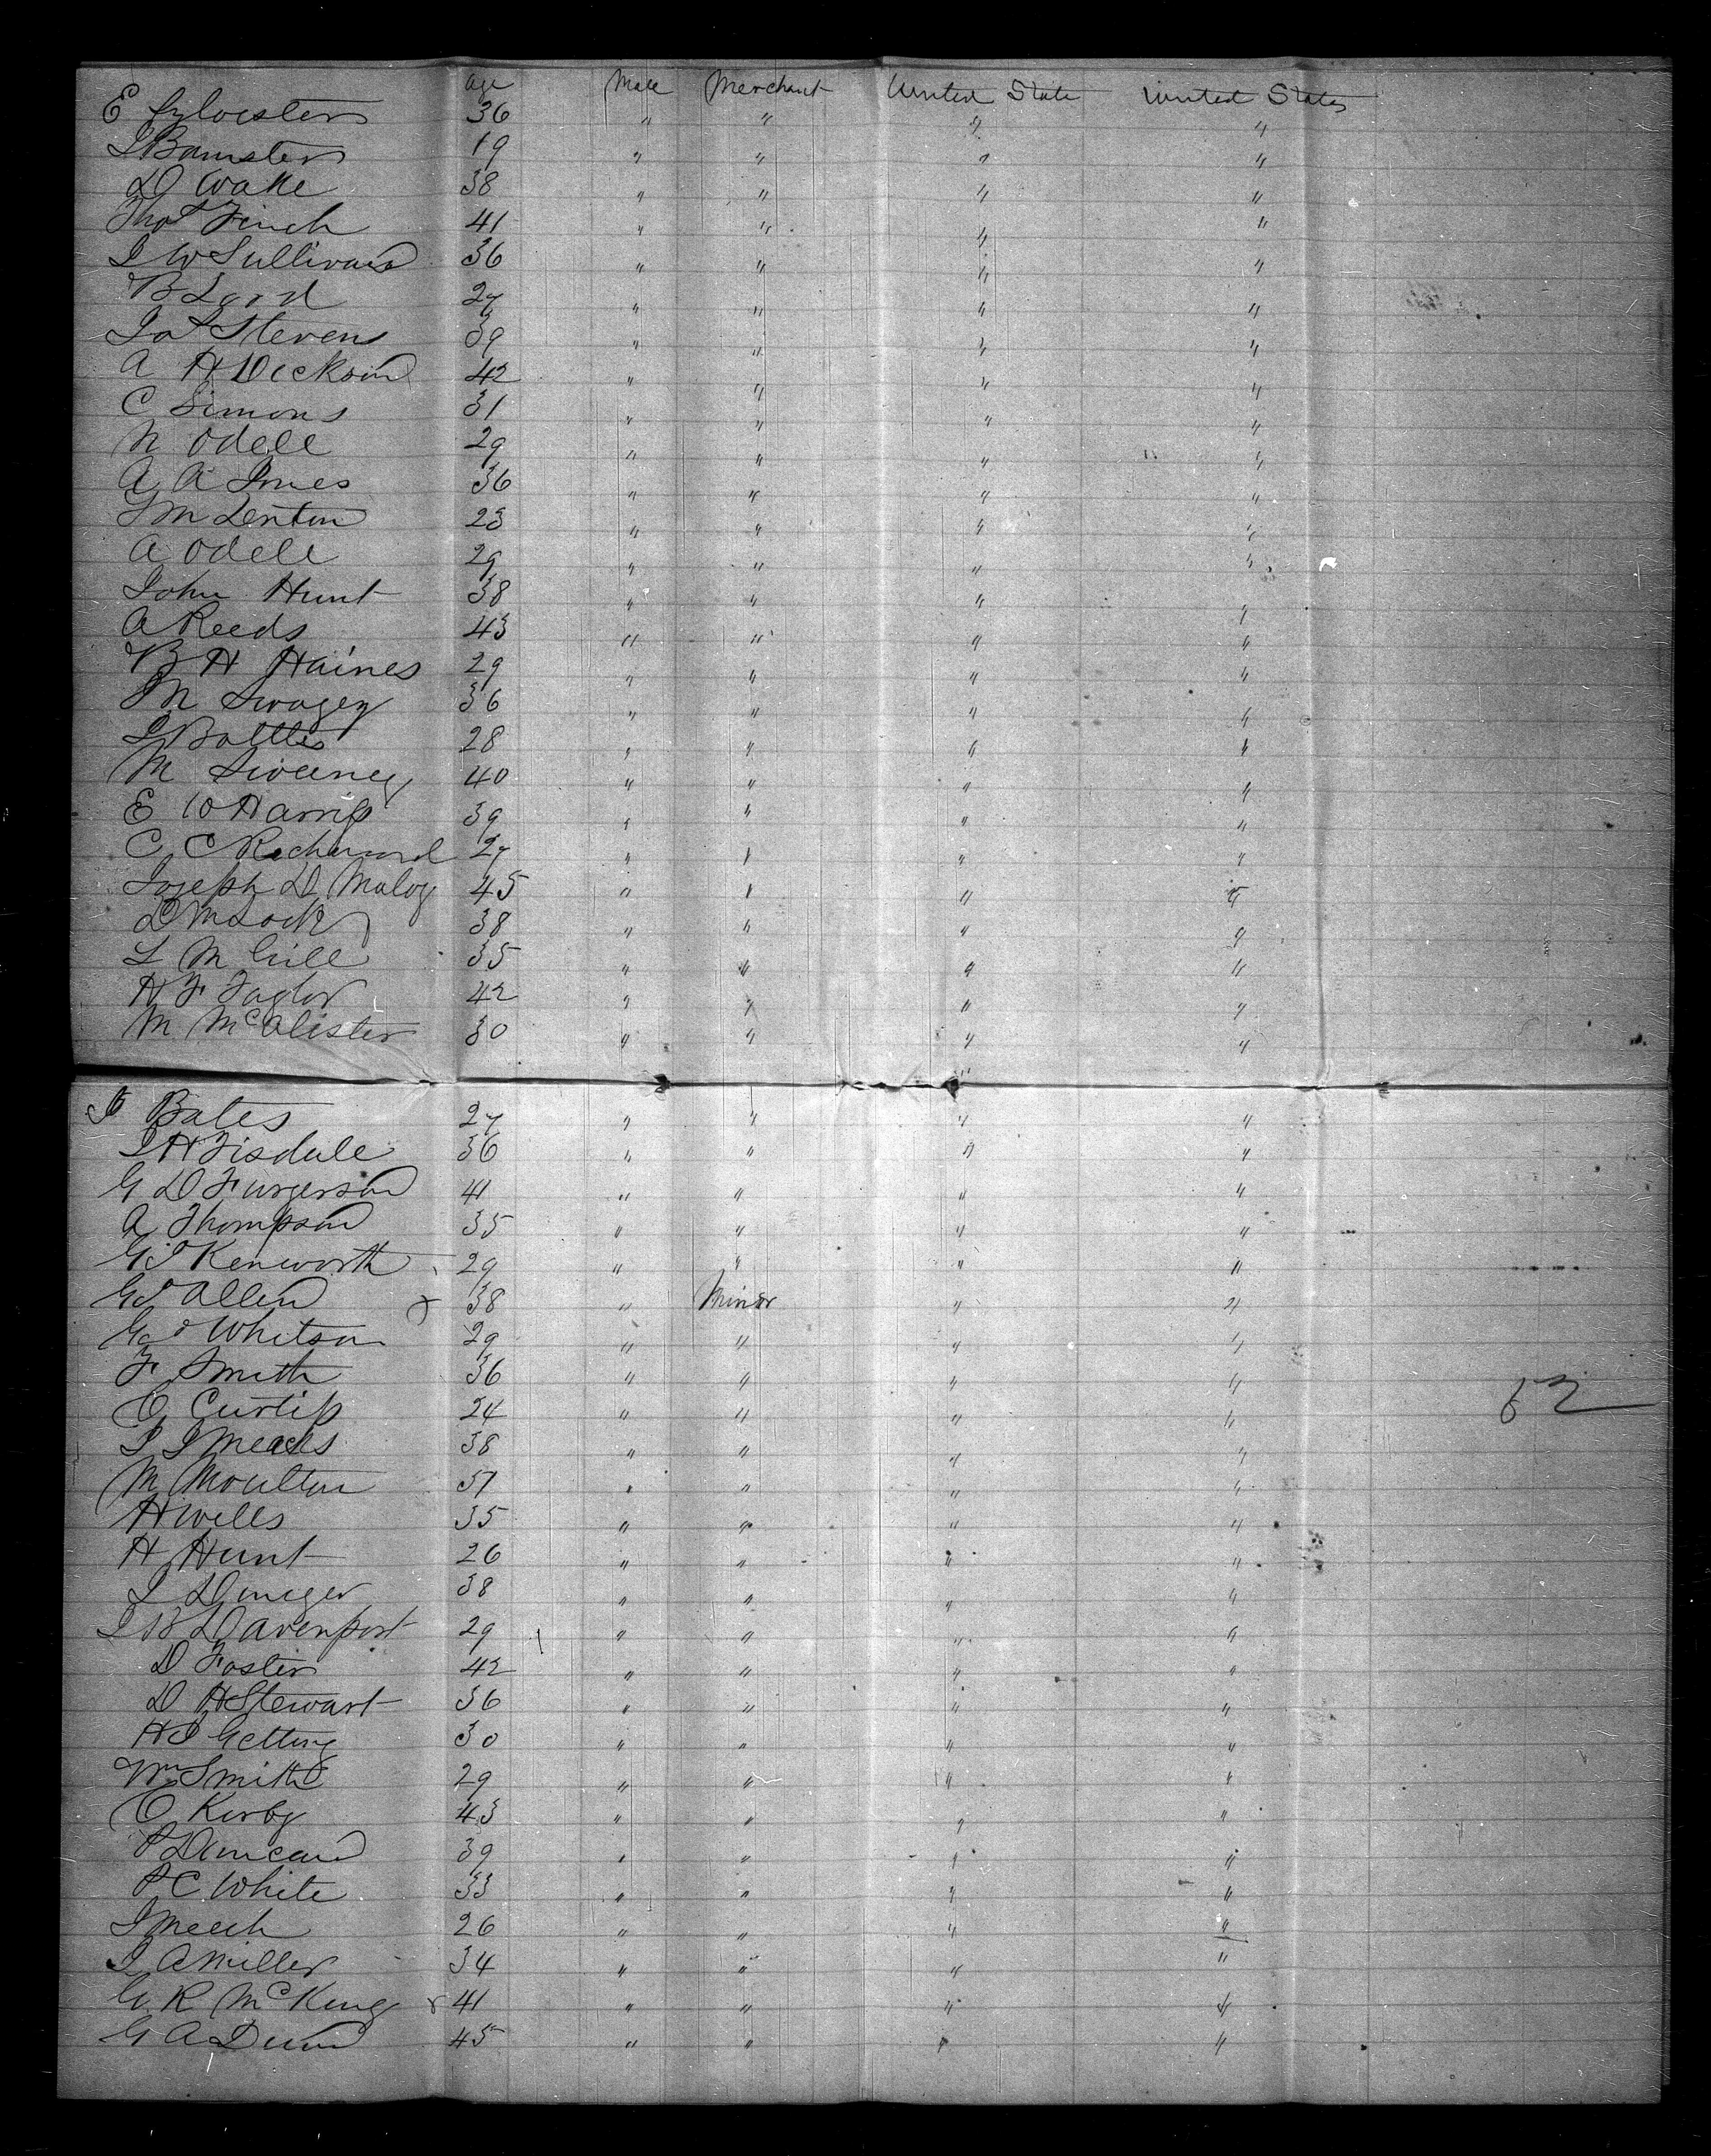 age Male Merchant United State United States
E Sylvester 36 " " " "
J Banister 19 " " " "
D Wake 38 " " " "
Thos Finch 41 " " " "
J W Sullivan 36 " " " "
B Lord 27 " " " "
Jas Stevens 39 " " " "
A H Dickson 42 " " " "
C Simons 31 " " " "
N Odell 29 " " " "
A A Jones 36 " " " "
M Denton 23 " " " "
A Odell 29 " " " "
John Hunt 38 " " " "
A Reeds 43 " " " "
B H Haines 29 " " " "
M Swagey 36 " " " "
J Battles 28 " " " "
M Sweeney 40 " " " "
E W Harriss 39 " " " "
C C Richmond 27 " " " "
Joseph D Maloy 45 " " " "
D M Lock 38 " " " "
L M Gill 35 " " " "
H F Taylor 42 " " " "
M McAlister 30 " " " "
J Bates 27 " " " "
J H Tisdale 36 " " " "
G D Furgerson 41 " " " "
A Thompson 35 " " " "
G J Kenworth 29 " " " "
G J Allen x 38 " Miner " "
Geo Whitson 29 " " " "
F Smith 36 " " " "
O Curtiss 24 " " " "
62
J J Meads 38 " " " "
M Moulton 37 " " " "
H Wells 35 " " " "
H Hunt 26 " " " "
J 38 " " " "
J B Davenport 29 " " " "
D Foster 42 " " " "
D H Stewart 36 " " " "
H J Getting 30 " " " "
Wm Smith 29 " " " "
O Kirby 43 " " " "
P Duncan 39 " " " "
P C White 33 " " " "
J Meech 26 " " " "
J A Miller 34 " " " "
G R McKing x 41 " " " "
G A Dunn 45 " " " "